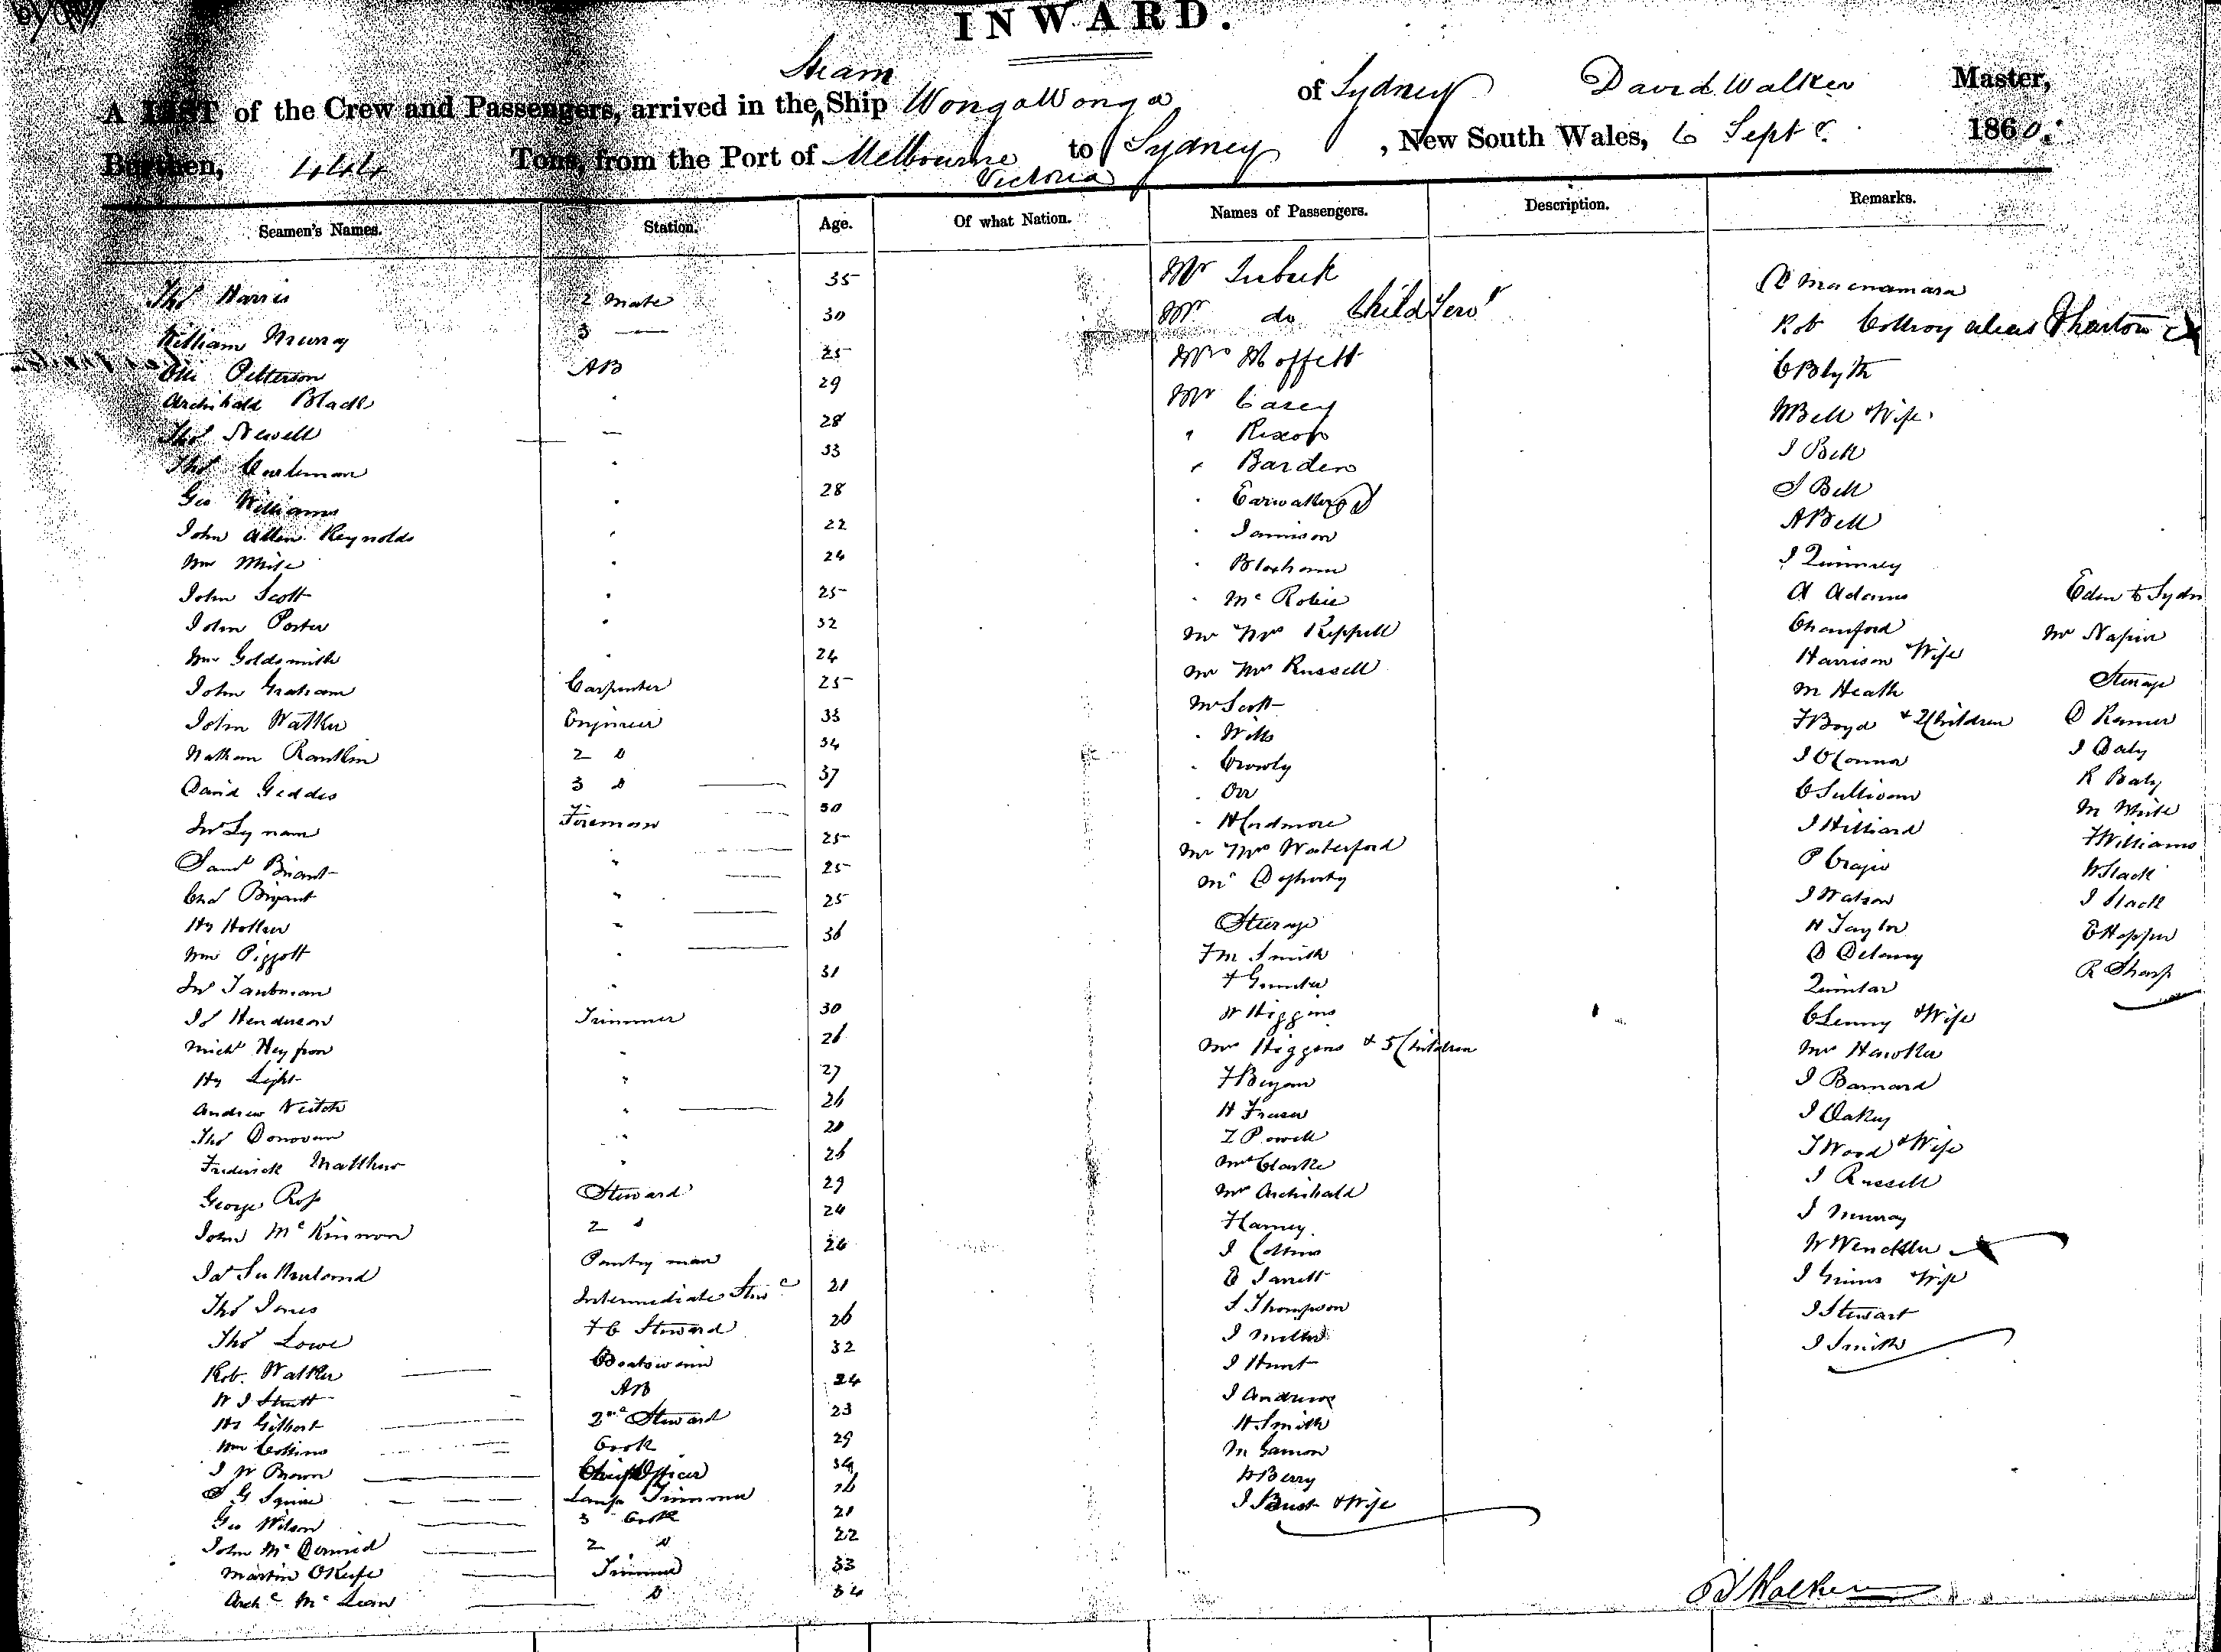 INWARD.
Steam
A LIST of the Crew and Passengers, arrived in the ^ Ship WongaWonga of Sydney David Walker Master,
Burthen, 444 Tons, from the Port of Melbourne to Sydney, New South Wales, 6 Septr. 1860.
Victoria
Seamen's Names. Station. Age. Of what Nation. Names of Passengers. Description. Remarks.
Thos Harris 2 Mate 35
William Murray 3 — 30
Petterson AB 25
Archibald Black 29
Thos Newell 28
Thos 33
Geo Williams 28
John Allen Reynolds 22
Wm White 24
John Scott 25
John Porter 32
Wm Goldsmith 24
John Graham Carpenter 25
John Walker Engineer 33
Nathan Rankin 2 D 34
David Geddes 3 D 37
Jno Lynam Fireman 30
Saml Briant 25
Chas Bryant 25
Hy 25
Wm Piggott 36
Jno Taubman 31
Js Henderson Trimmer 30
Michl 26
Hy Light 27
Andrew Veitch 26
Thos Donovan 20
Frederick Matthews 26
George Ross Steward 29
John McKinnon 2 D 24
Jas Sutherland Pantry man 26
Thos Jones Intermediate Stewd 21
Thos Lowe F C Steward 26
Rob. Walker Boatswain 32
W J Strutt AB 24
Hy Gilbert 2nd Steward 23
Wm Collins Cook 29
J W Brown Chief Officer 34
S G Squire Lamp Trimmer 26
Geo Wilson 3 Cook 21
John McDermid 2 D 22
Martin OKeefe Trimmer 33
Archd McLean D 34
Mr
Mrs do Child & Servt
Mrs Moffett
Mr Casey
" Rixon
" Barden
" Earwaker
" Jamison
" Bloxham
" McRobie
Mr Mrs Keppell
Mr Mrs Russell
Mr Scott
" Wills
" Crowly
" Orr
" H Cudmore
Mr Mrs Waterford
Mr Dogherty
Steerage
F M Smith
F Gunter
W Higgins
Mrs Higgins & 5 Children
F Bryan
H Fraser
Z Powell
Mrs Clarke
Mr Archibald
F Harvey
J Collins
E Jarrett
S Thompson
J Miller
J Hunt
J Andrews
H Smith
M Gannon
W Berry
J Bust & Wife
Macnamara
Rob Collroy alias Wharton X
C Blyth
W Bell & Wife
J Bell
S Bell
A Bell
J
A Adams
Harrison & Wife
M Heath
F Boyd & 2 Children
J OConnor
C Sullivan
J Hilliard
P
J Watson
H Taylor
D Delany
Quinlan
C Lenny & Wife
Mrs Hawker
J Barnard
J Oakey
J Wood & Wife
J Russell
J Murray
W
J Grimes & Wife
J Stewart
J Smith
Eden to Sydn
Mr Napier
Steerage
D
J Daly
R Daly
M White
F Williams
W Slack
J Slack
E Hopper
R Sharp
D Walker